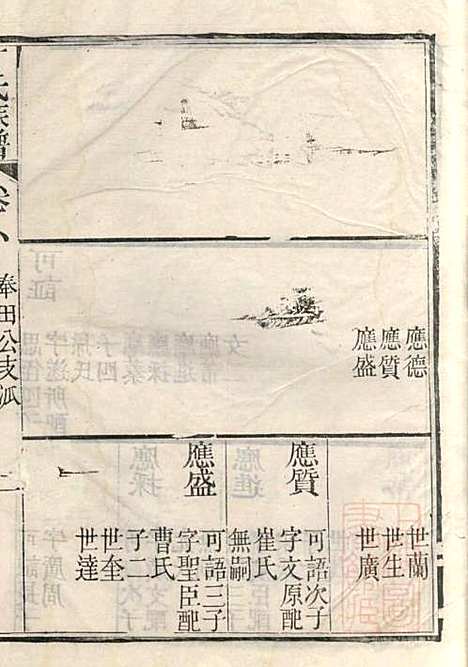 應德
應質
應盛
世蘭
世生
世廣
應質
可語次子
字文原配
崔氏
無嗣
應盛
可語三子
字聖臣配
曹氏
子二
世奎
世達
氏族譜
卷八
奉田公支派